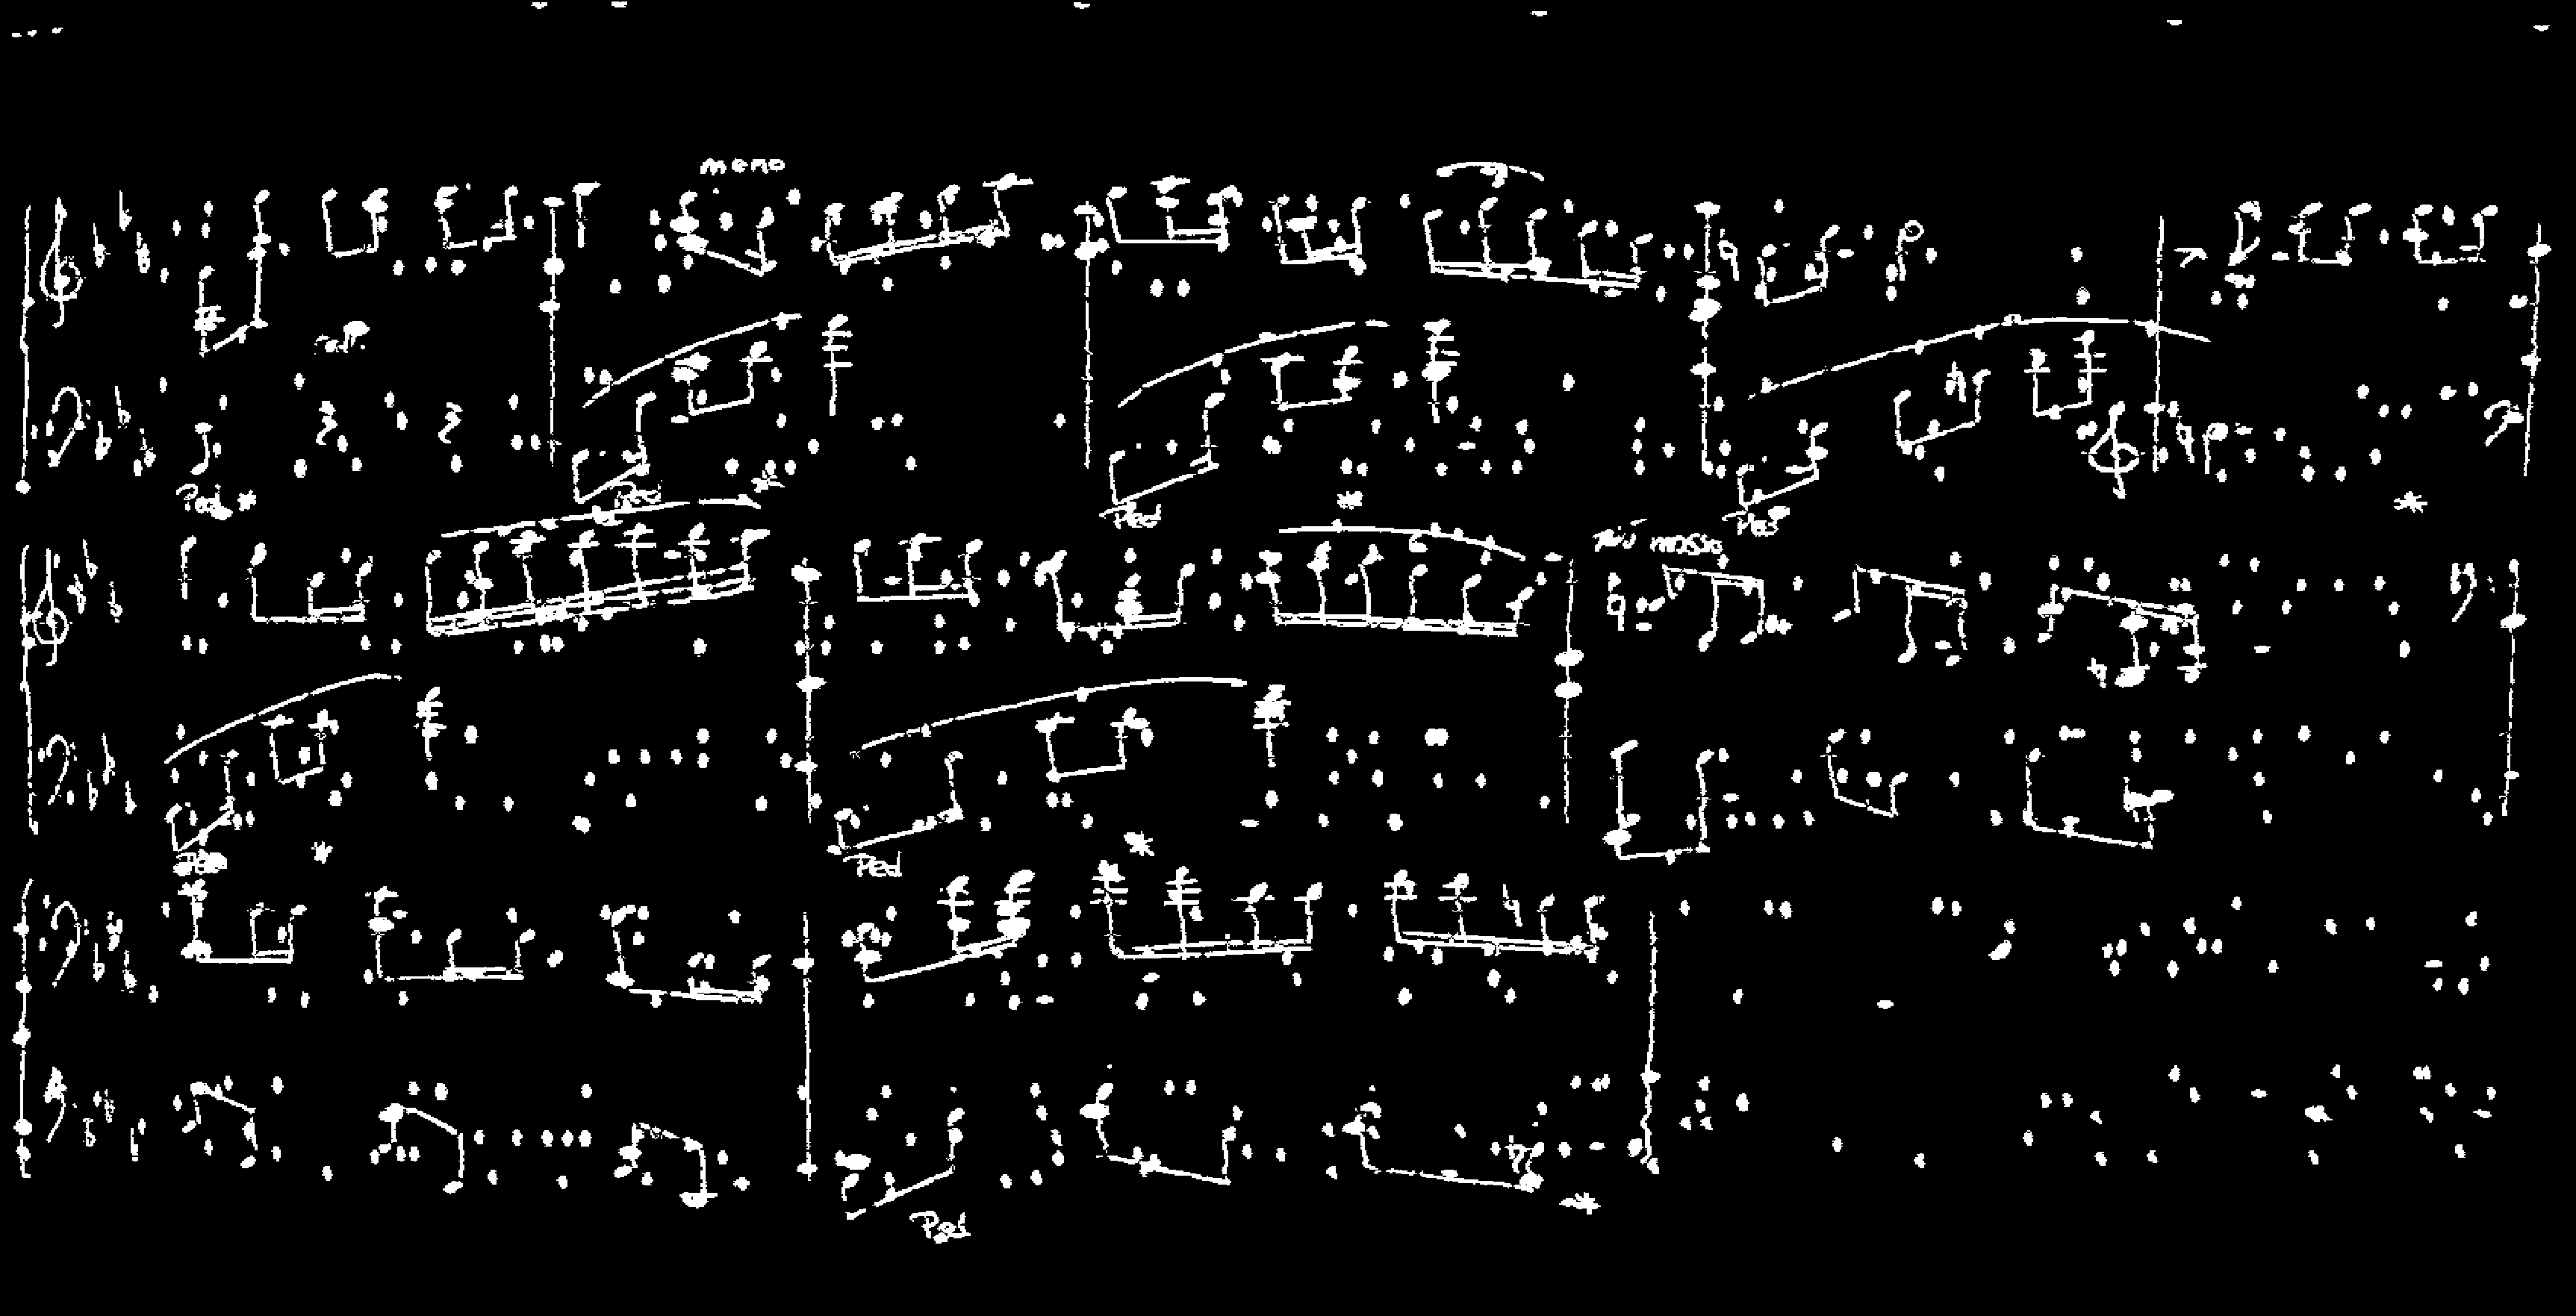 meno
rall.
Ped * Ped *
Ped * Ped *
più mosso
Ped * Ped *
Ped *